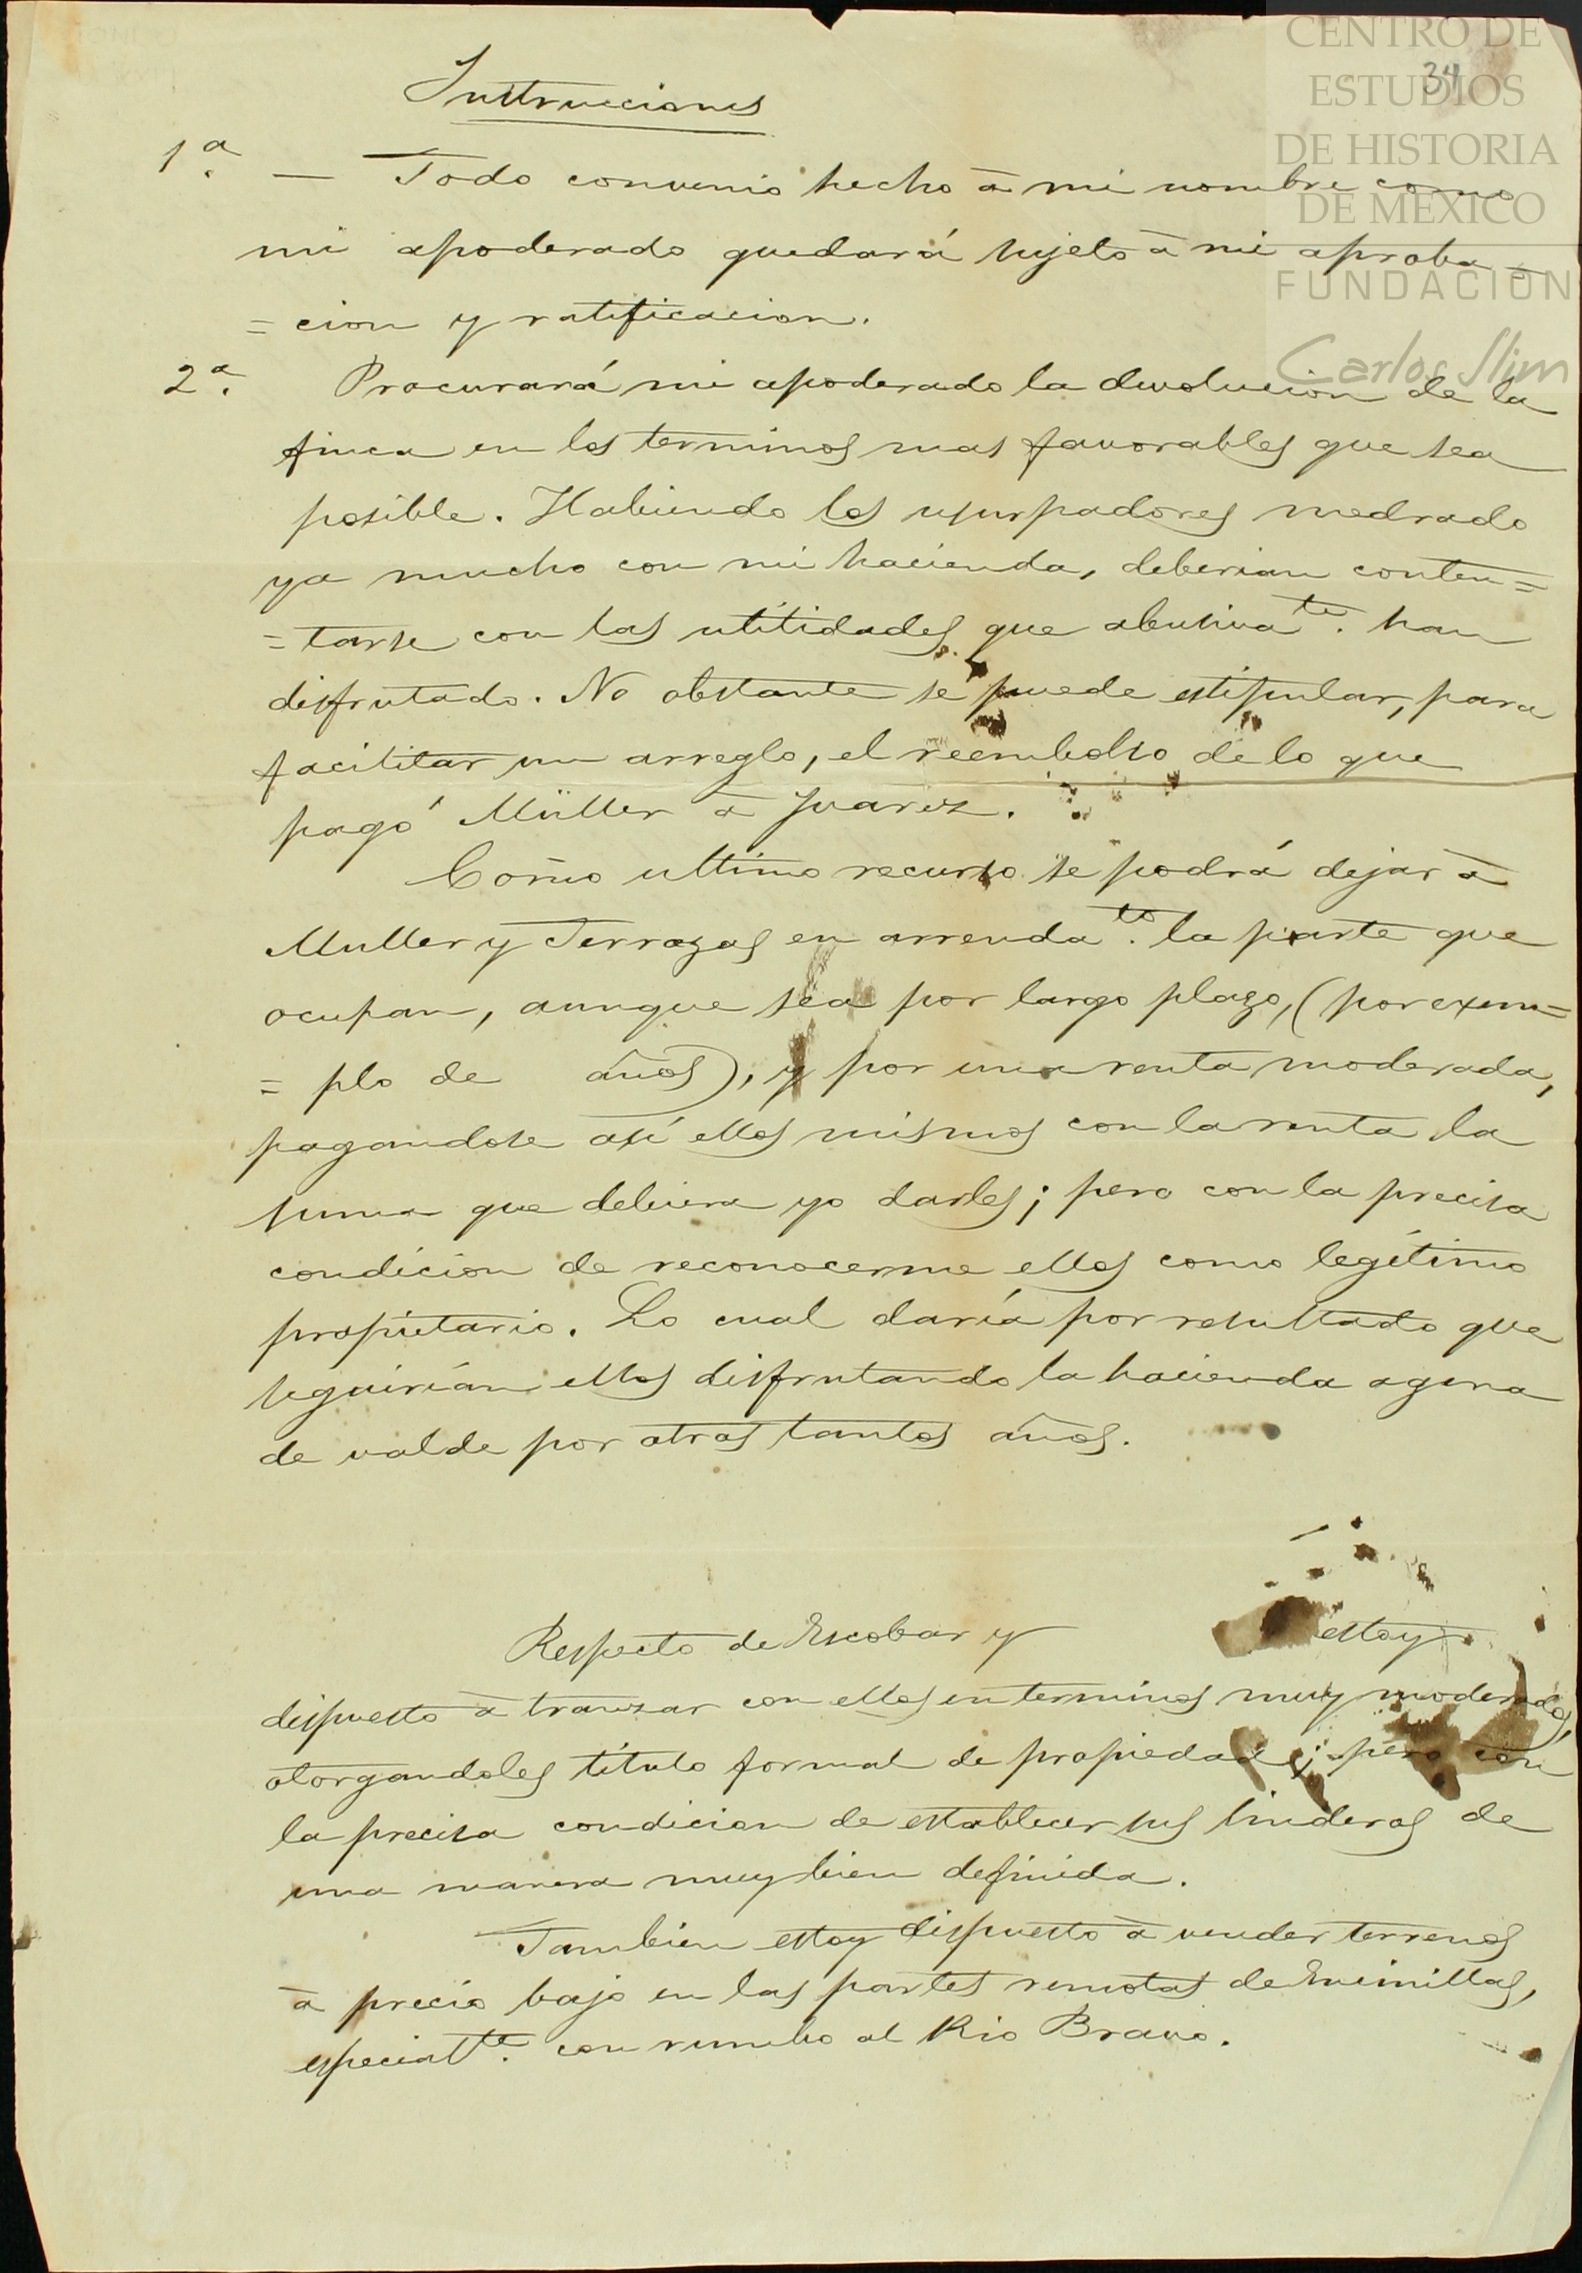 CENTRO DE
ESTUDIOS
DE HISTORIA
DE MÉXICO
FUNDACIÓN
Carlos Slim
34
Instrucciones
1ª. — Todo convenio hecho à mi nombre como
mi apoderado quedará sujeto à mi aproba=
=cion y ratificacion.
2ª. Procurará mi apoderado la devolucion de la
finca en los terminos mas favorables que sea
posible. Habiendo los usurpadores medrado
ya mucho con mi hacienda, deberian conten=
=tarse con las utilidades que abusivaᵗᵉ. han
disfrutado. No obstante se puede estipular, para
facilitar un arreglo, el reembolso de lo que
pagó Müller à Juarez.
Como ultimo recurso se podrá dejar à
Muller y Terrazas en arrendaᵗᵒ. la parte que
ocupan, aunque sea por largo plazo, (por exem=
=plo de años), y por una renta moderada,
pagandose asi ellos mismos con la renta la
suma que debiera yo darles; pero con la precisa
condicion de reconocerme ellos como legítimo
propietario. Lo cual daría por resultado que
seguirián ellos disfrutando la hacienda agena
de valde por otros tantos años.
Respecto de Escobar y estoy
dispuesto à transar con ellos en terminos muy moderados,
otorgandoles título formal de propiedad; pero con
la precisa condicion de establecer sus linderos de
una manera muy bien definida.
Tambien estoy dispuesto à vender terrenos
à precio bajo en las partes remotas de Encinillas,
especialᵗᵉ. con rumbo al Rio Bravo.